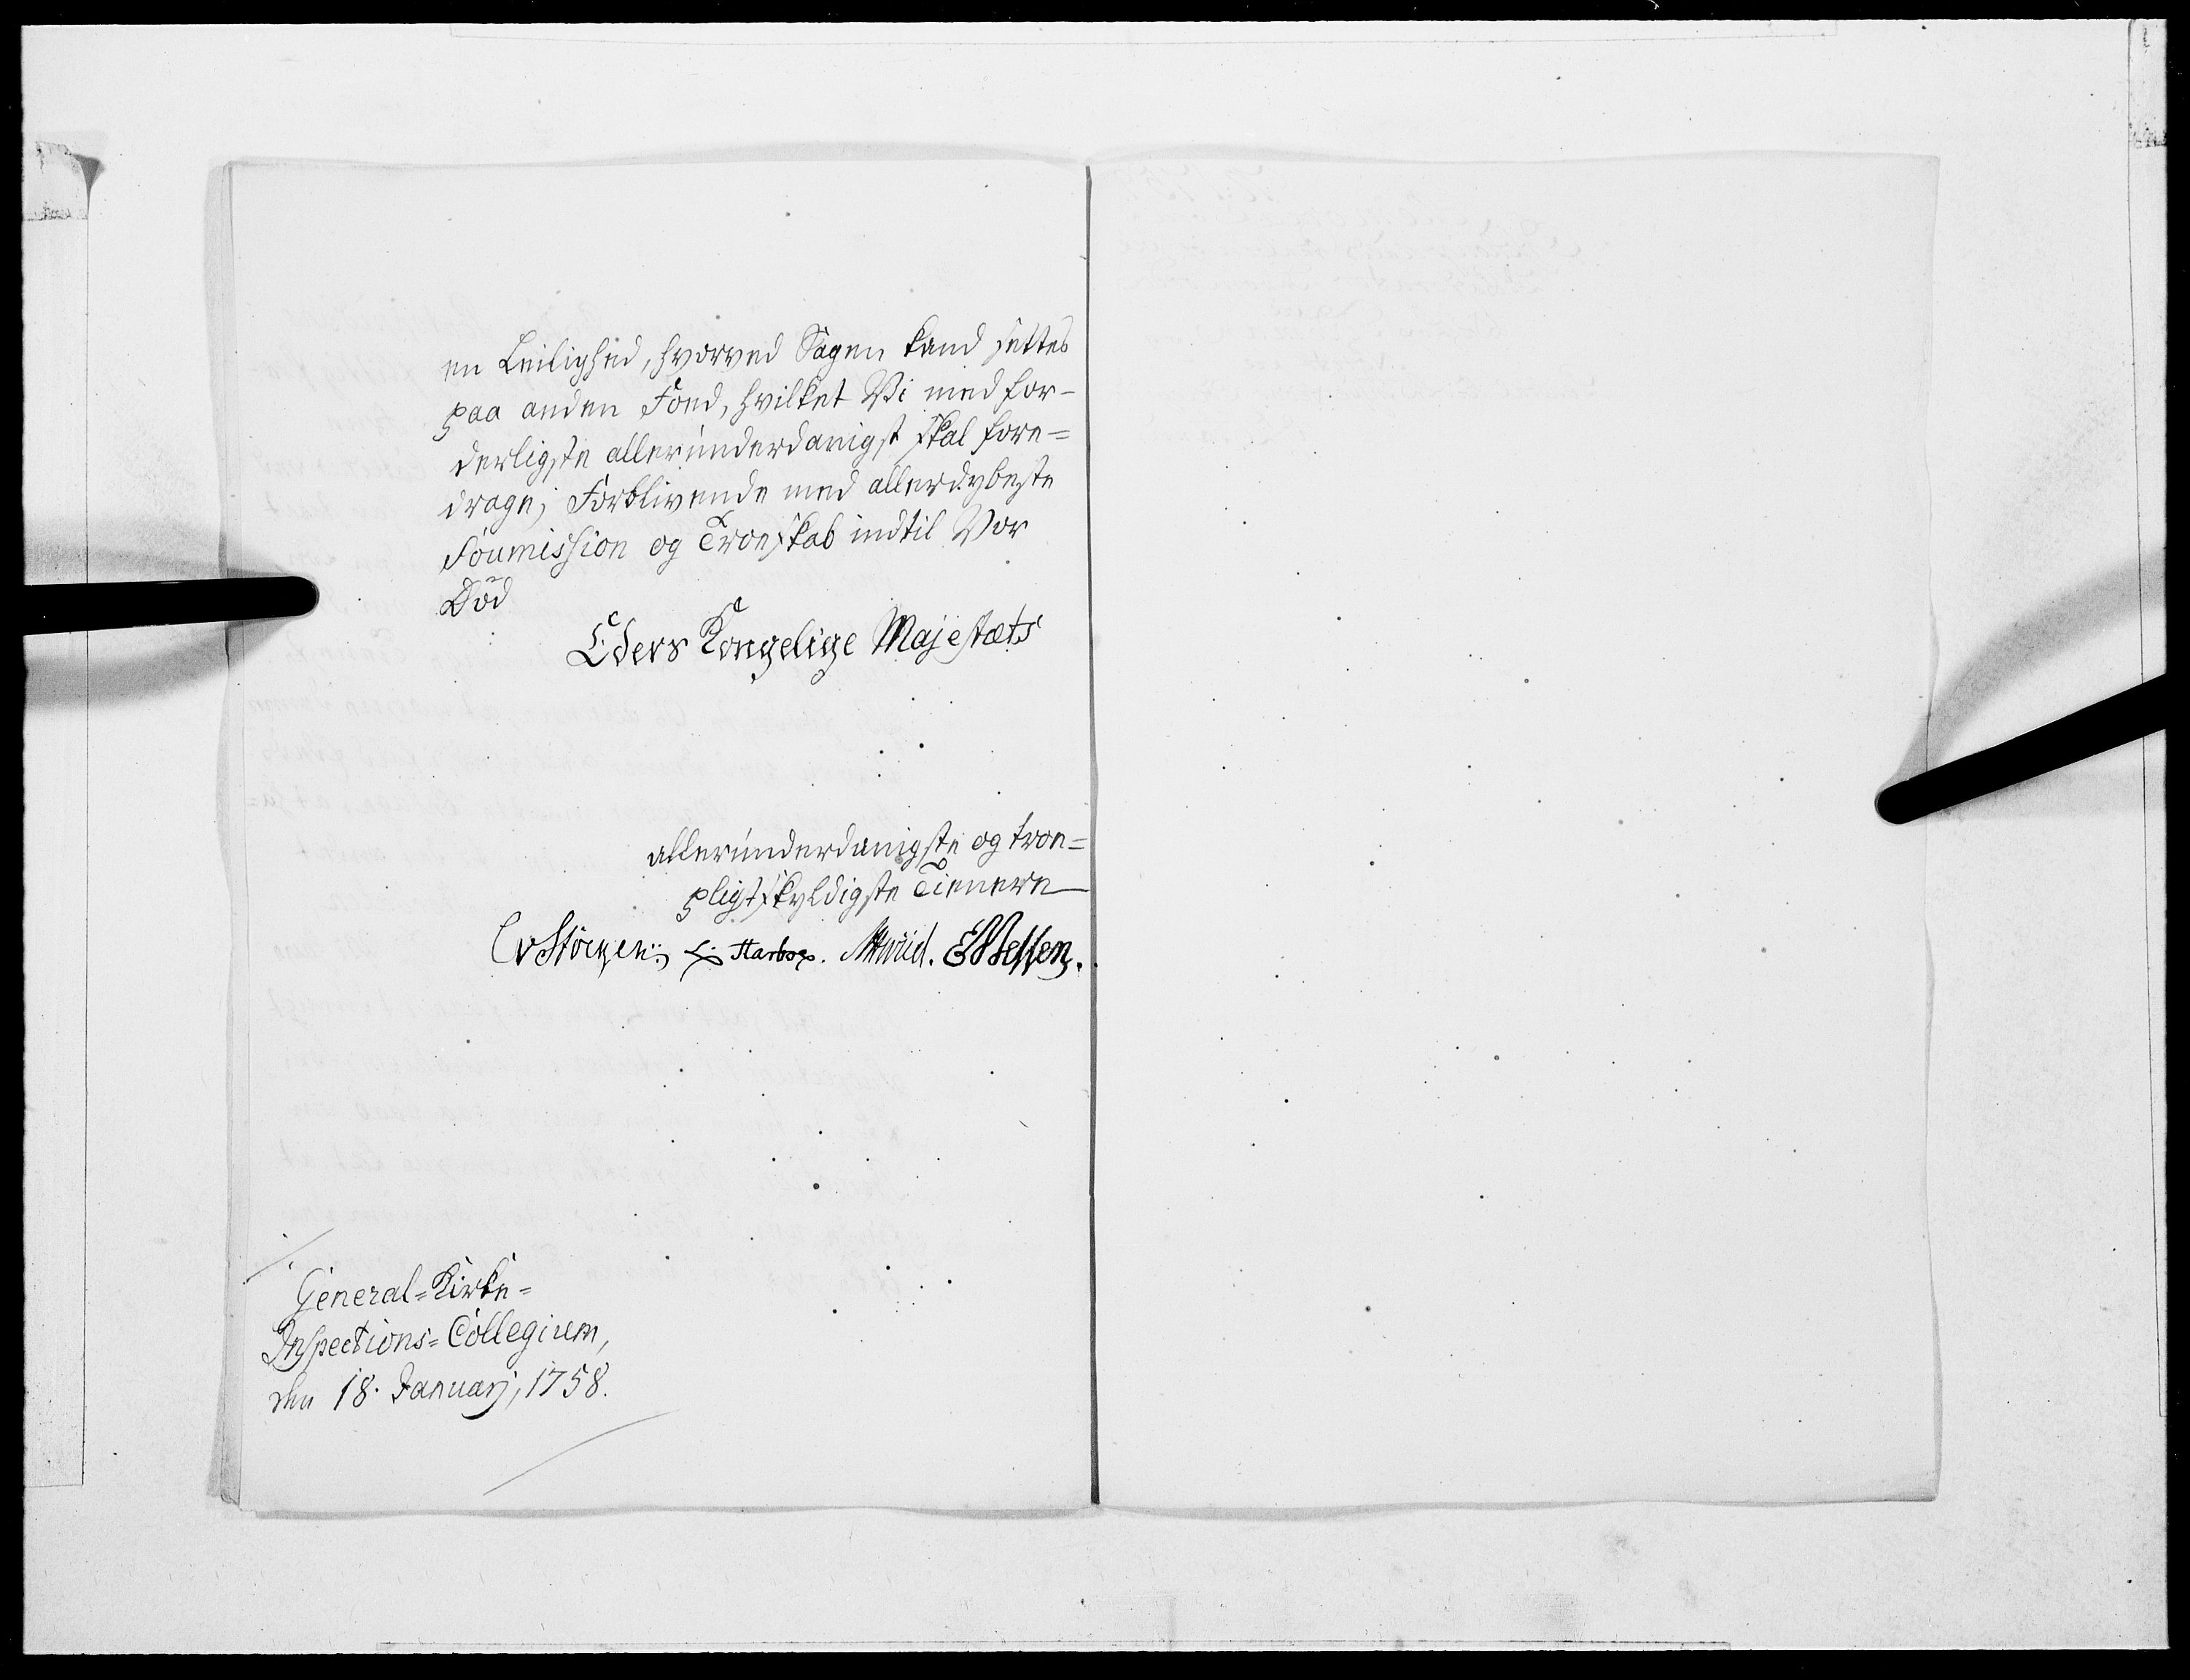 en Leilighed, hvorved Sagen kand settes
paa anden Foed, hvilket Vi med for-
derligste allerunderdanigst skal fore=
drage; Forblivende med allerdybeste
Soumission og Troeskab indtil Vor
Død
Eders Kongelige Majestæts
allerunderdanigste og troe=
pligtskyldigste Tienere
L: Harboe. EWessen.
General=Kirke=
Inspections=Collegium,
den 18. Januarj, 1758.